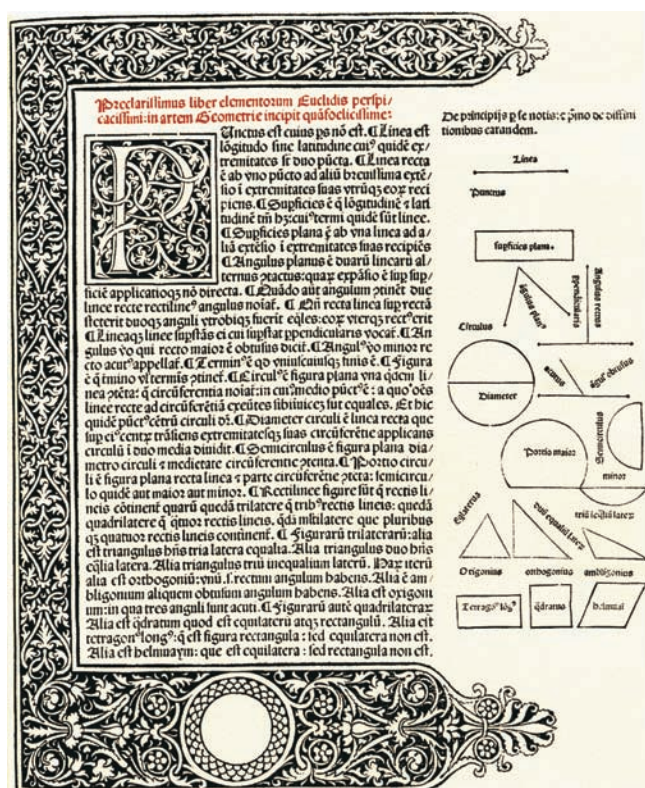 Preclarissimus liber elementorum Euclidis perspi/
cacissimi: in artem Geometrie incipit quãfoelicissime:
Punctus est cuius ps nõ est. ¶ Linea est
lõgitudo sine latitudine cuiꝰ quidẽ ex/
tremitates st duo pũcta. ¶ Linea recta
ẽ ab vno pũcto ad aliũ breuissima extẽ/
sio ĩ extremitates suas vtrũqꝫ eoꝝ reci
piens. ¶ Supficies ẽ q̃ lõgitudinẽ ⁊ lati
tudinẽ tm̃ hꝫ: cuiꝰ termi quidẽ sũt linee.
¶ Supficies plana ẽ ab vna linea ad a/
liã extẽsio ĩ extremitates suas recipiẽs
¶ Angulus planus ẽ duarũ linearũ al/
ternus ꝯtactus: quaꝝ expãsio ẽ sup sup/
ficiẽ applicatioqꝫ nõ directa. ¶ Quãdo aut angulum ꝯtinẽt due
linee recte rectilineꝰ angulus noiat̃. ¶ Qñ recta linea sup rectã
steterit duoqꝫ anguli vtrobiqꝫ fuerit eq̃les: eoꝝ vterqꝫ rectꝰ erit
¶ Lineaqꝫ linee supstãs ei cui supstat ppendicularis vocat̃. ¶ An
gulus vo qui recto maior ẽ obtusus dicit̃. ¶ Angulꝰ vo minor re
cto acutꝰ appellat̃. ¶ Terminꝰ ẽ qd vniuscuiusqꝫ finis ẽ. ¶ Figura
ẽ q̃ tmino vl terminis ꝯtinet̃. ¶ Circulꝰ ẽ figura plana vna qdem li/
nea ꝯtẽta: q̃ circũferentia noiat̃: in cuiꝰ medio pũctꝰ ẽ: a quo oẽs
linee recte ad circũferẽtiã exeũtes sibiinuiceꝫ sut equales. Et hic
quidẽ pũctꝰ cẽtrũ circuli dr̃. ¶ Diameter circuli ẽ linea recta que
sup eiꝰ centꝝ trãsiens extremitatesqꝫ suas circũferẽtie applicans
circulũ ĩ duo media diuidit. ¶ Semicirculus ẽ figura plana dia/
metro circuli ⁊ medietate circũferentie ꝯtenta. ¶ Portio circu/
li ẽ figura plana recta linea ⁊ parte circũferẽtie ꝯtẽta: semicircu/
lo quidẽ aut maior aut minor. ¶ Rectilinee figure sũt q̃ rectis li/
neis cõtinent̃ quarũ quedã trilatere q̃ tribꝰ rectis lineis: quedã
quadrilatere q̃ q̃tuor rectis lineis. qdã mltilatere que pluribus
qꝫ quatuor rectis lineis continent̃. ¶ Figurarũ trilaterarũ: alia
est triangulus hñs tria latera equalia. Alia triangulus duo hñs
eq̃lia latera. Alia triangulus triũ inequalium laterũ. Haꝝ iterũ
alia est orthogoniũ: vnũ .s. rectum angulum habens. Alia ẽ am/
bligonium aliquem obtusum angulum habens. Alia est oxigoni
um: in qua tres anguli sunt acuti. ¶ Figurarũ autẽ quadrilateraꝝ
Alia est q̃dratum quod est equilaterũ atqꝫ rectangulũ. Alia est
tetragonꝰ longꝰ: q̃ est figura rectangula: sed equilatera non est.
Alia est helmuaym: que est equilatera: sed rectangula non est.
De principijs p se notis: ⁊ pmo de diffini
tionibus earandem.
Linea
Punctus
supficies plana.
ãgulus planꝰ
ppendicularis
Angulus rectus
Circulus
Diameter
acutus
ãgulꝰ obtusus
Portio maior
Semicirculus
minor
Eq̃laterus
duũ equaliũ lateꝝ
triũ ineq̃liũ lateꝝ
Oxigonius
orthogonius
ambligonius
Tetragonꝰ lõgꝰ
q̃dratus
helmuai